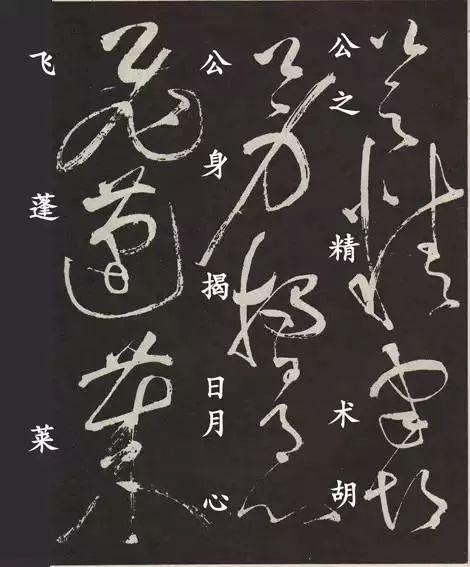 公之精术胡
公身揭日月心
飞蓬莱